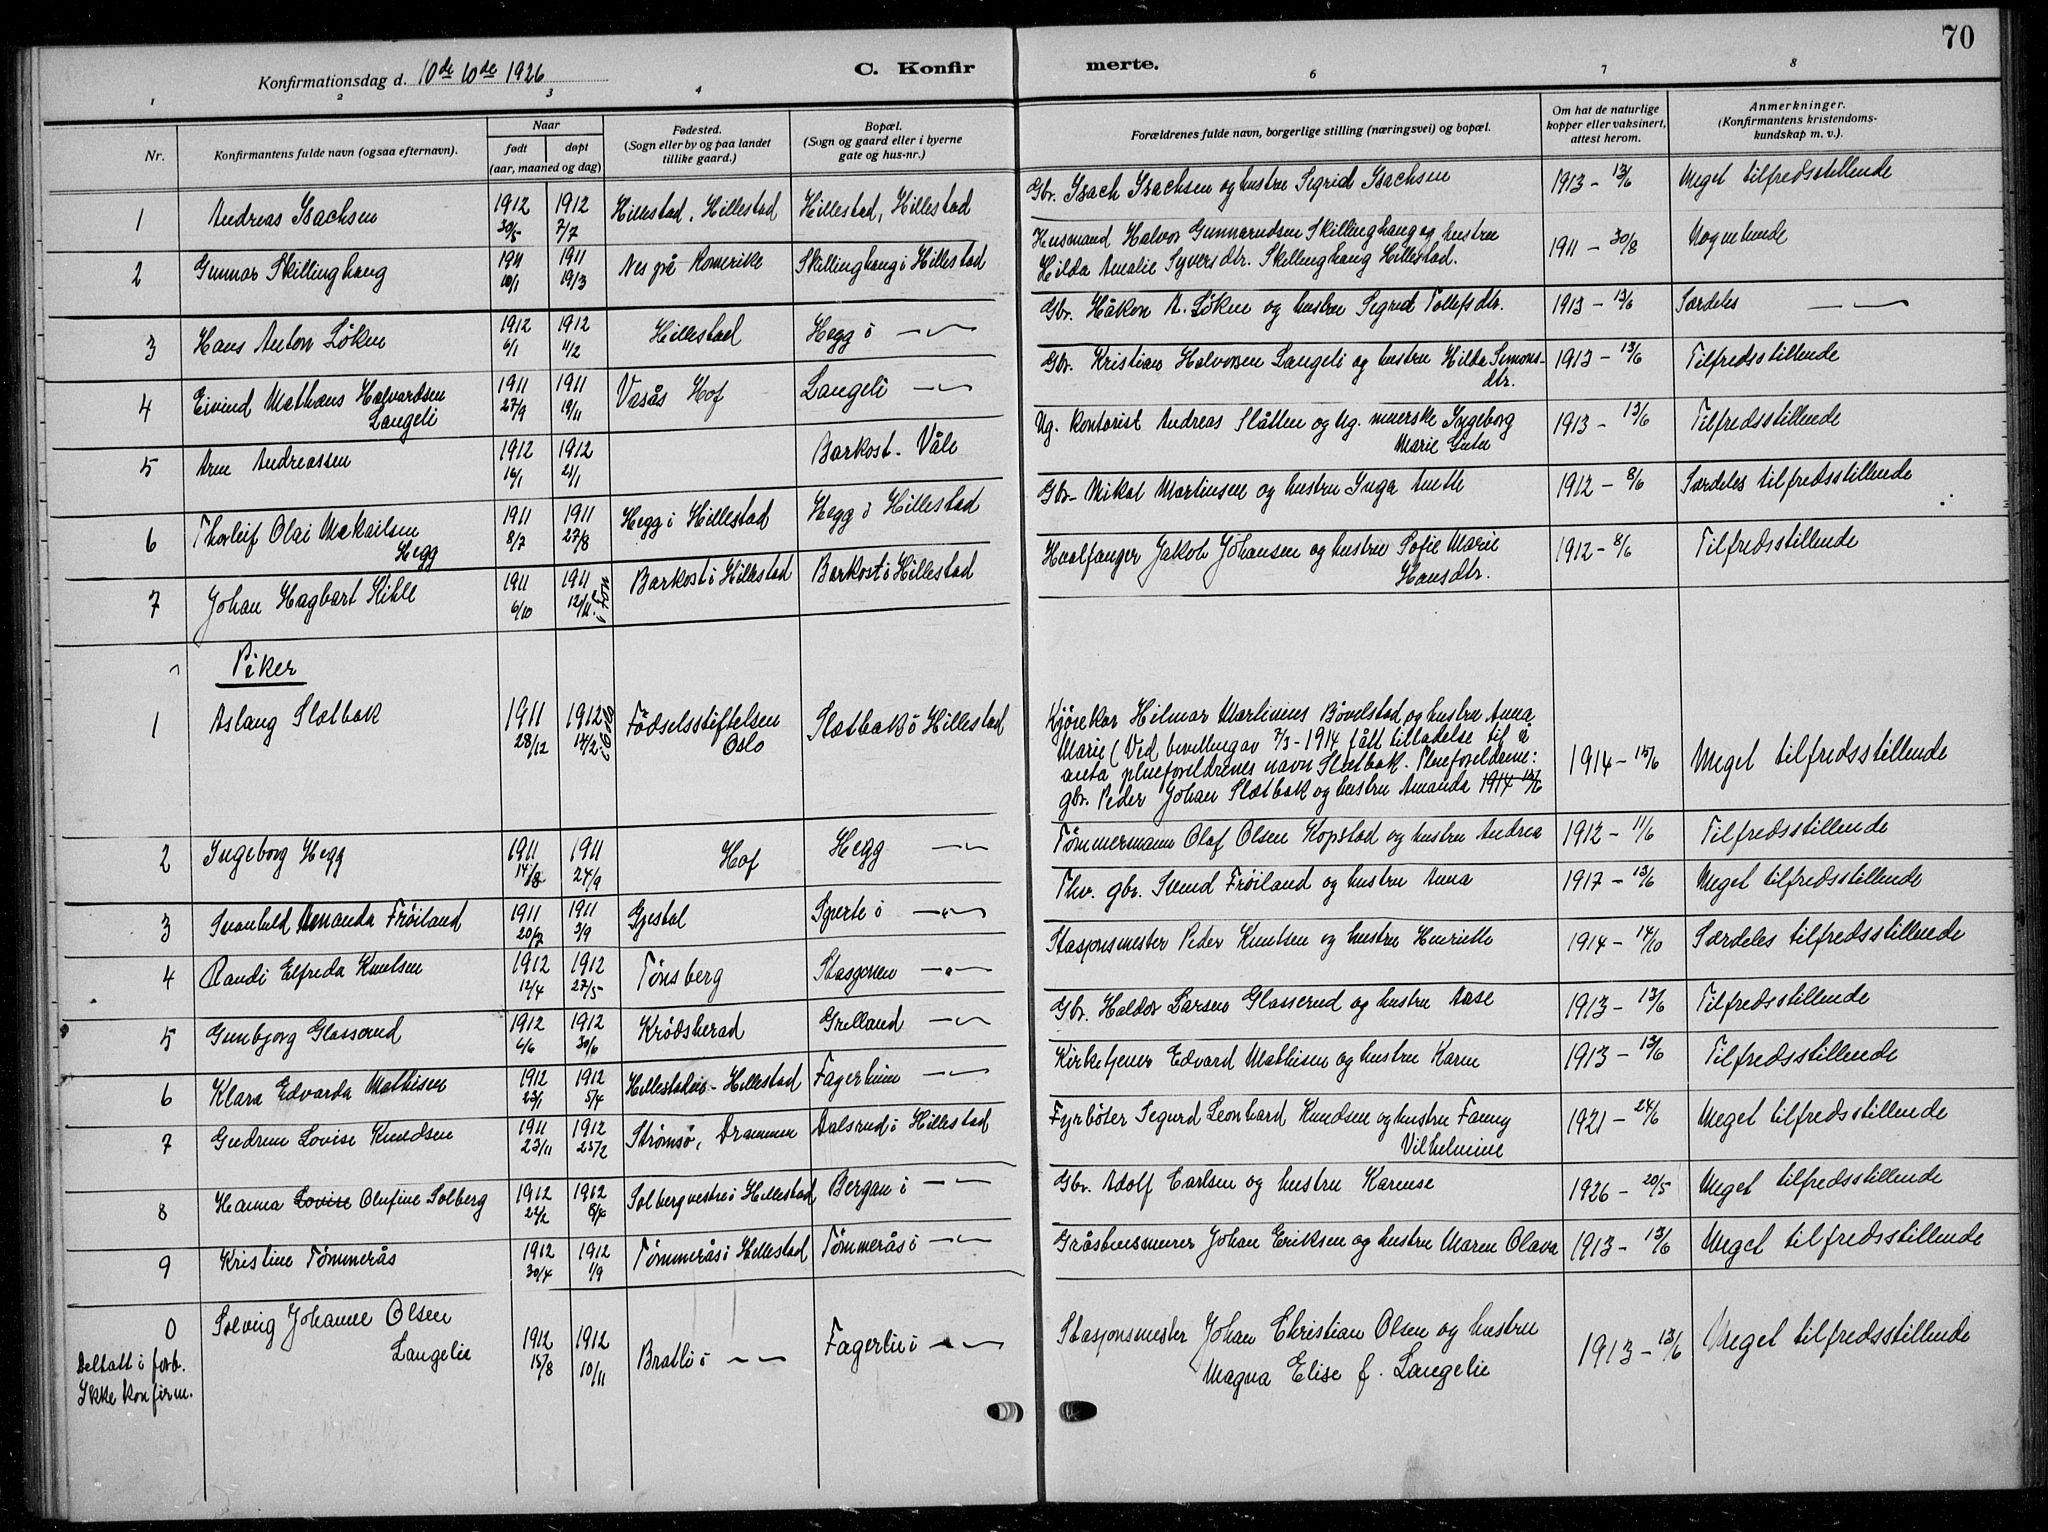 70
Konfirmationsdag d. 10de 10de 1926
C. Konfirmerte.
1 2 3 4 6 7 8
Nr.
Konfirmantens fulde navn (ogsaa efternavn).
Naar
født
døpt
(aar, maaned og dag)
Fødested.
(Sogn eller by og paa landet
tillike gaard.)
Bopæl.
(Sogn og gaard eller i byerne
gate og hus-nr.)
Forældrenes fulde navn, borgerlige stilling (næringsvei) og bopæl.
Om hat de naturlige
kopper eller vaksinert,
attest herom.
Anmerkninger.
(Konfirmantens kristendoms-
kundskap m. v.)
1 Andreas Isachsen 1912 30/5 1912 7/7 Hillestad, Hillestad Hillestad, Hillestad Gbr. Isach Isachsen og hustru Sigrid Isachsen 1913 – 13/6 Meget tilfredsstillende
2 Gunnar Skillinghaug 1911 10/1 1911 19/3 Nes på Romerike Skillinghaug i Hillestad Husmand Halvor Gunnarudsen Skillinghaug og hustru
Hilda Amalie Syversdtr. Skillinghaug Hillestad. 1911 – 30/8 Nogenlunde
3 Hans Anton Løken 1912 6/1 1912 11/2 Hillestad Hegg i —"— Gbr. Håkon A. Løken og hustru Sigrid Tollefsdtr. 1913 – 13/6 Særdeles —"—
4 Eivind Mathæus Halvardsen
Langeli 1911 27/9 1911 19/11 Vasås Hof Langeli —"— Gbr. Kristian Halvorsen Langeli og hustru Hilda Simons-
dtr. 1913 – 13/6 Tilfredsstillende
5 Arne Andreassen 1912 16/1 1912 21/1 Barkost. Våle Ug. kontorist Andreas Slåtten og Ug. meierske Ingeborg
Marie 1913 – 13/6 Tilfredsstillende
6 Thorleif Olai Mikailsen
Hegg 1911 8/7 1911 27/8 Hegg i Hillestad Hegg i Hillestad Gbr. Mikal Martinsen og hustru Inga Anette 1912 – 8/6 Særdeles tilfredsstillende
7 Johan Hagbart Kihle 1911 6/10 1911 12/11 i Fon Barkost i Hillestad Barkost i Hillestad Hvalfanger Jakob Johansen og hustru Sofie Marie
Hansdtr. 1912 – 8/6 Tilfredsstillende
Piker
1 Aslaug Slætbak 1911 28/12 1912 14/2 i Oslo Fødselsstiftelsen
Oslo Slætbak i Hillestad Kjørekar Hilmar Martinius Bøvelstad og hustru Anna
Marie (Ved bevilling av 7/3 – 1914 fått tilladelse til å
anta pleieforeldrenes navn Slætbak. Pleieforeldrene:
gbr. Peder Johan Slætbak og hustru Amanda 1914 13/6 1914 – 15/6 Meget tilfredsstillende
2 Ingeborg Hegg 1911 14/8 1911 24/9 Hof Hegg —"— Tømmermann Olaf Olsen Kopstad og hustru Andrea 1912 – 11/6 Tilfredsstillende
3 Svanhild Amanda Frøiland 1911 20/7 1911 3/9 Gjestal Sperte i —"— Fhv. gbr. Svend Frøiland og hustru Anna 1917 – 13/6 Meget tilfredsstillende
4 Randi Elfreda Knutsen 1912 12/4 1912 27/5 Tønsberg Stasjonen —"— Stasjonsmester Peder Knutsen og hustru Henriette 1914 – 14/10 Særdeles tilfredsstillende
5 Gunbjørg Glasserud 1912 6/6 1912 30/6 Krødsherad Grelland —"— Gbr. Haldor Larsen Glasserud og hustru Aase 1913 – 13/6 Tilfredsstillende
6 Klara Edvarda Mathisen 1912 23/1 1912 5/4 Hillestad Fagerheim —"— Kirketjener Edvard Mathisen og hustru Karen 1913 – 13/6 Tilfredsstillende
7 Gudrun Lovise Knudsen 1911 23/11 1912 25/2 Strømsø, Drammen Dalsrud i Hillestad Fyrbøter Sigurd Leonhard Knudsen og hustru Fanny
Vilhelmine 1921 – 24/6 Meget tilfredsstillende
8 Hanna Lovise Olufine Solberg 1912 22/2 1912 8/4 Solberg vestre i Hillestad Bergan i —"— Gbr. Adolf Carlsen og hustru Karense 1926 – 20/5 Meget tilfredsstillende
9 Kristine Tømmerås 1912 30/4 1912 1/9 Tømmerås i Hillestad Tømmerås i —"— Gråsteinsmurer Johan Eriksen og hustru Maren Olava 1913 – 13/6 Meget tilfredsstillende
0 Solveig Johanne Olsen
Langelie 1912 15/8 1912 10/11 Bratli i —"— Fagerlie i —"— Stasjonsmester Johan Christian Olsen og hustru
Magna Elise f. Langelie 1913 – 13/6 Meget tilfredsstillende
Deltatt i forb.
Ikke konfirm.